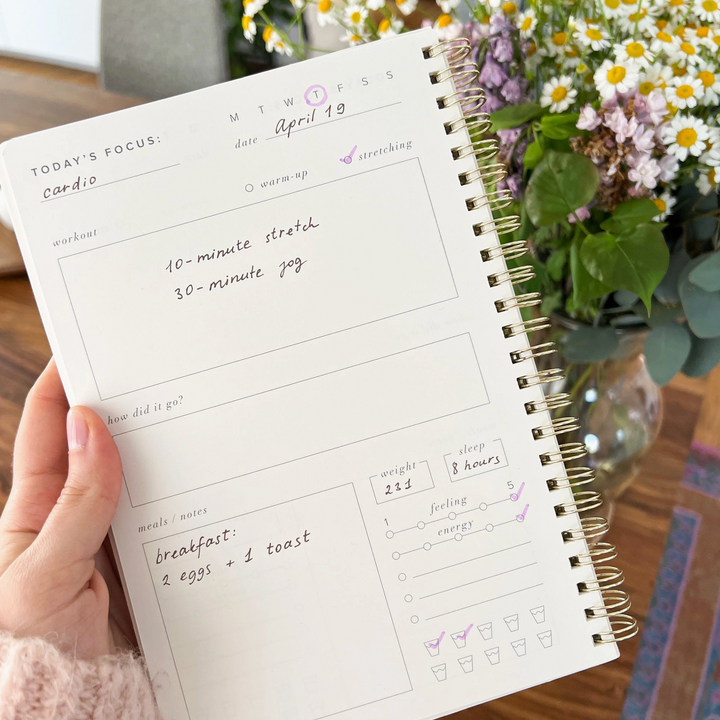 M T W T F S S
TODAY'S FOCUS:
date April 19
cardio
warm-up stretching
workout
10-minute stretch
30-minute jog
how did it go?
weight sleep
231 8 hours
meals / notes
1 feeling 5
energy
breakfast:
2 eggs + 1 toast